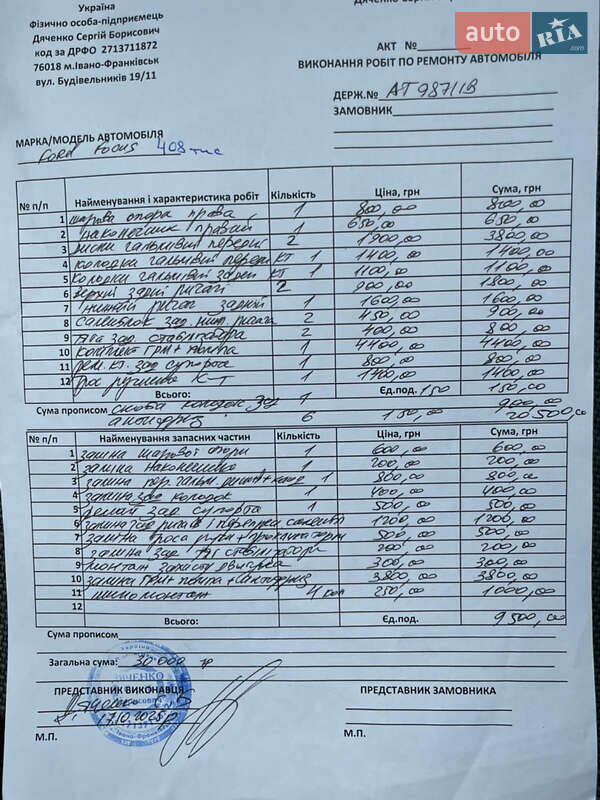 Україна
Фізично особа-підприємець
Дяченко Сергій Борисович
код за ДРФО 2713711872
76018 м.Івано-Франківськ
вул. Будівельників 19/11
auto RIA .com
АКТ №
ВИКОНАННЯ РОБІТ ПО РЕМОНТУ АВТОМОБІЛЯ
ДЕРЖ.№ АТ 9871ІВ
ЗАМОВНИК
МАРКА/МОДЕЛЬ АВТОМОБІЛЯ
Ford Focus 408 тис
№ п/п Найменування і характеристика робіт Кількість Ціна, грн Сума, грн
1 шарова опора права 1 800,00 800,00
2 наконечник правий 1 650,00 650,00
3 диски гальмівні передні 2 1900,00 3800,00
4 колодки гальмівні передні КТ 1 1400,00 1400,00
5 колодки гальмівні задні КТ 1 1100,00 1100,00
6 верхній задні ричаги 2 900,00 1800,00
7 нижній ричаг задній 1 1600,00 1600,00
8 Салейблок зад. ниж. ричага 2 450,00 900,00
9 зад. стабілізатора 2 400,00 800,00
10 комплект ГРМ + помпа 1 4400,00 4400,00
11 рем. кт. зад супорта 1 800,00 800,00
12 Трос ручника К-Т 1 1400,00 1400,00
Всього: Єд.под. 150 150,00
Сума прописом скоба колодок зад 1 900,00
антифриз 6 150,00 20 500,00
№ п/п Найменування запасних частин Кількість Ціна, грн Сума, грн
1 заміна шарової опори 1 600,00 600,00
2 заміна наконечника 1 200,00 200,00
3 заміна пер. гальм. 1 800,00 800,00
4 заміна зад колодок 1 400,00 400,00
5 зад супорта 1 500,00 500,00
6 заміна зад ричагів і 1200,00 1200,00
7 заміна троса ручн + 500,00 500,00
8 заміна зад стабілізатори 200,00 200,00
9 монтаж захисту двигуна 300,00 300,00
10 заміна ГРМ + помпа + антифриз 3800,00 3800,00
11 шиномонтаж 4 250,00 1000,00
12
Всього: Єд.под. 9500,00
Сума прописом
Загальна сума: 30 000 гр
ПРЕДСТАВНИК ВИКОНАВЦЯ ПРЕДСТАВНИК ЗАМОВНИКА
17.10.2025р
М.П. М.П.